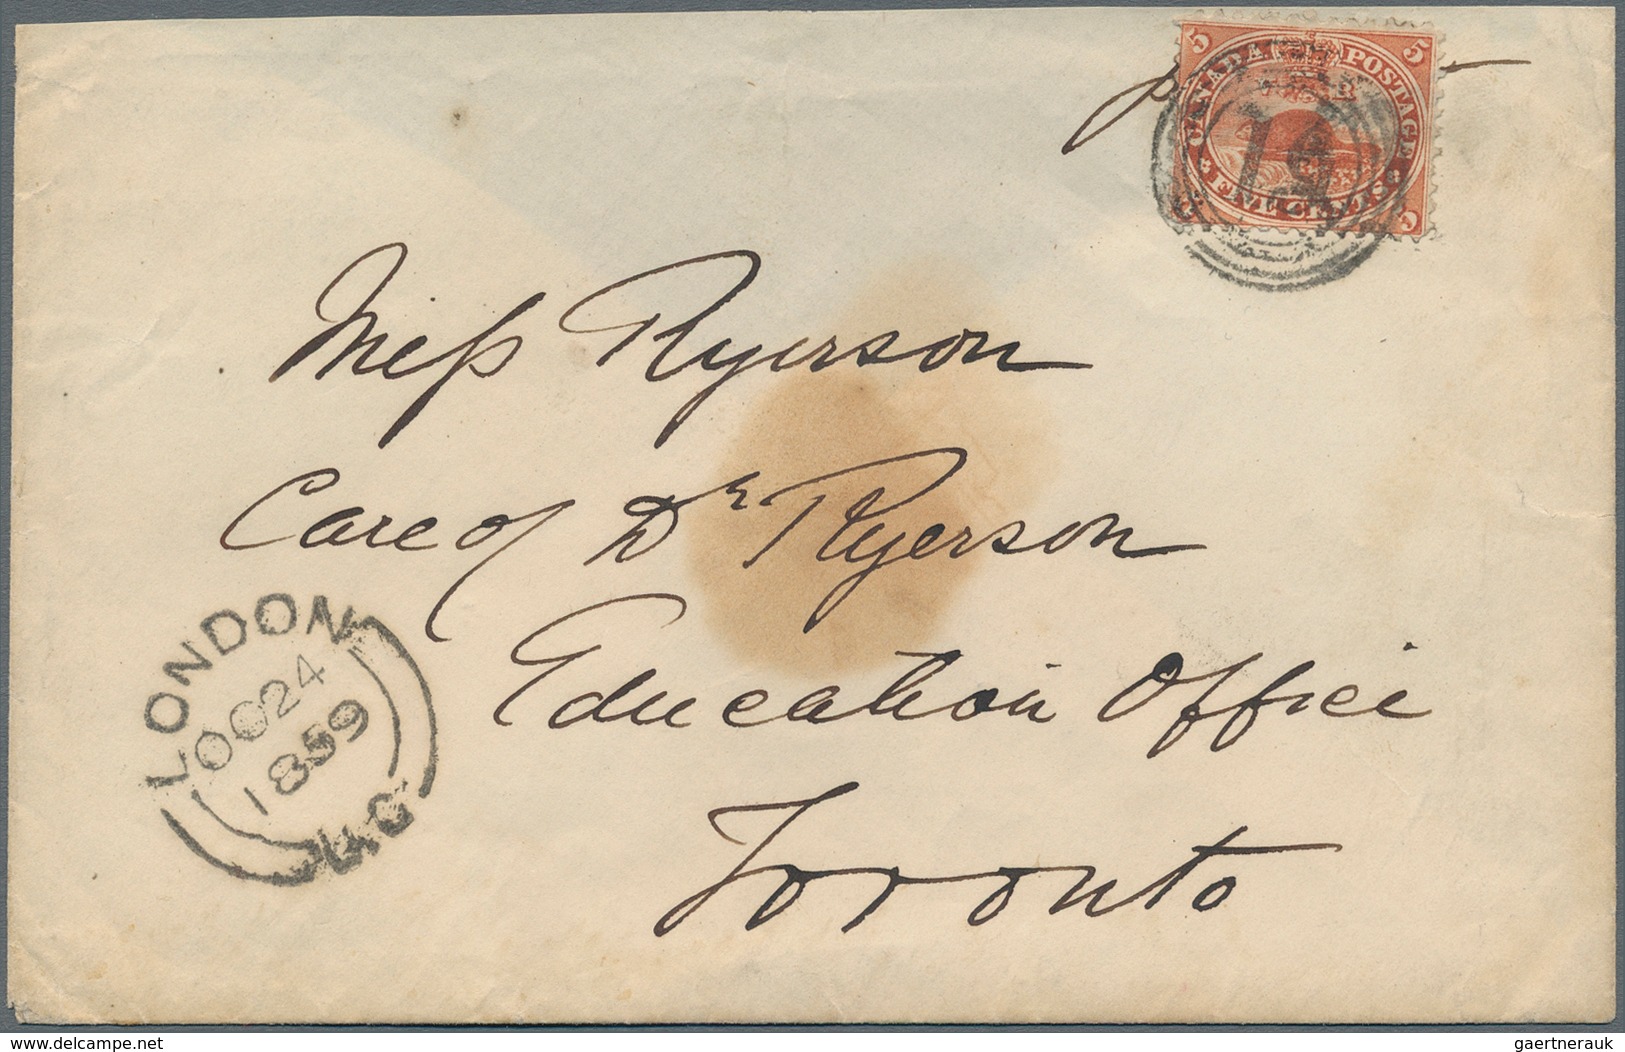 5 CANADA POSTAGE 5
FIVE CENTS
5 5
19
Miss Ryerson
Care of Dr Ryerson
Education Office
Toronto
LONDON
OC 24
1859
U.C
gaertnerauk
delcampe.net